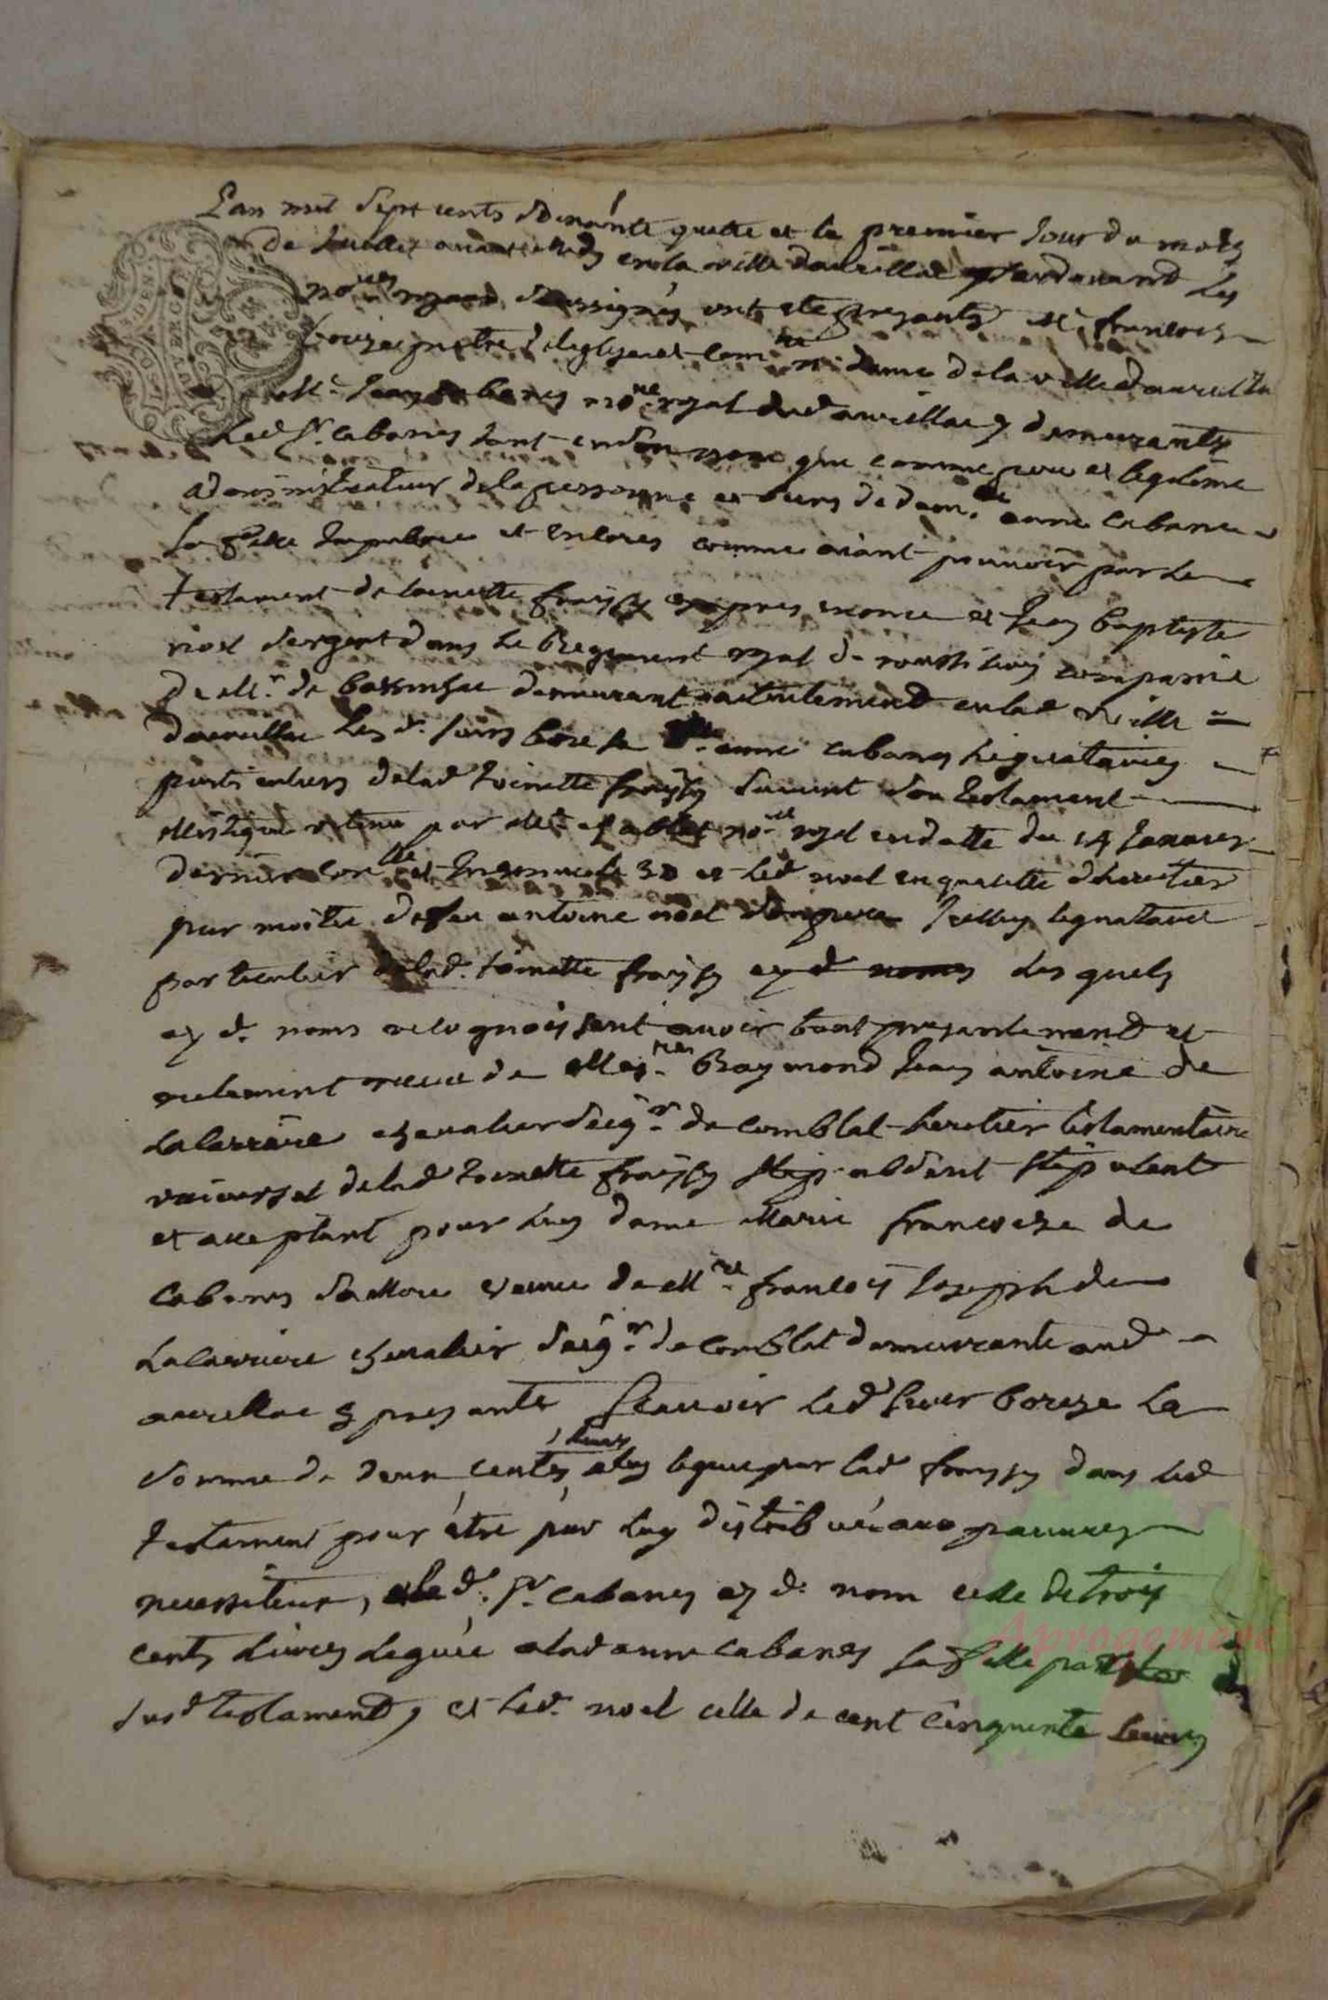 L'an mil sept cents soixante quatre et le premier jour du mois
de Juillet avant midy en la ville daurillac pardevand les
no.res royaux soussignés ont ete presants Me francois
Boize pretre de leglise et com.te n. dame de la ville daurillac
et Me Jean Cabanes no.re royal dud aurillac y demeurants
Led Sr. Cabanes tant en son nom que comme pere et legitime
administrateur de la personne et biens de dem.lle anne Cabanes
sa fille Impubere et encores comme aiant pouvoir par le
testament de toinette fraissy apres enonce et Jean baptiste
noel sergent dans le Regiment royal de roussillon compagnie
de Mr. de demeurant actuelement en lad ville
daurillac Les d. sieurs boize la d.lle anne cabanes legataires
particuliers de lad toinette fraissy suivant son testament
Mistique retenu par Me no.re royal en datte du 14 Janvier
dernier con.lle et Insinue le 30 et led noel en qualitte dheritier
pour moitie de feu antoine noel son pere Iceluy legataire
particulier de lad. toinette fraissy ez d noms les quels
ez d. noms recognoissent avoir tout presantemend et
reelement receu de Mes.re Raymond Jean antoine de
Lacarriere chevalier seig.r de Comblat heretier testamentaire
universel de lad toinette fraissy stip absant stipulent
et acceptant pour luy dame Marie francoise de
Cabanes veuve de M.re francois Joseph de
Lacarriere chevalier seig.r de Comblat demeurante aud
aurillac y presante Scavoir led sieur boize la
somme de deux cents livres a luy leguee par lad fraissy dans led
testament pour être par luy distribuée aux pauvres
necessiteux, led. Sr. Cabanes ez d. nom celle de trois
cents livres leguée a lad anne Cabanes sa fille par le
susd testament, et led. noel celle de cent cinquente livres
Aprogemere